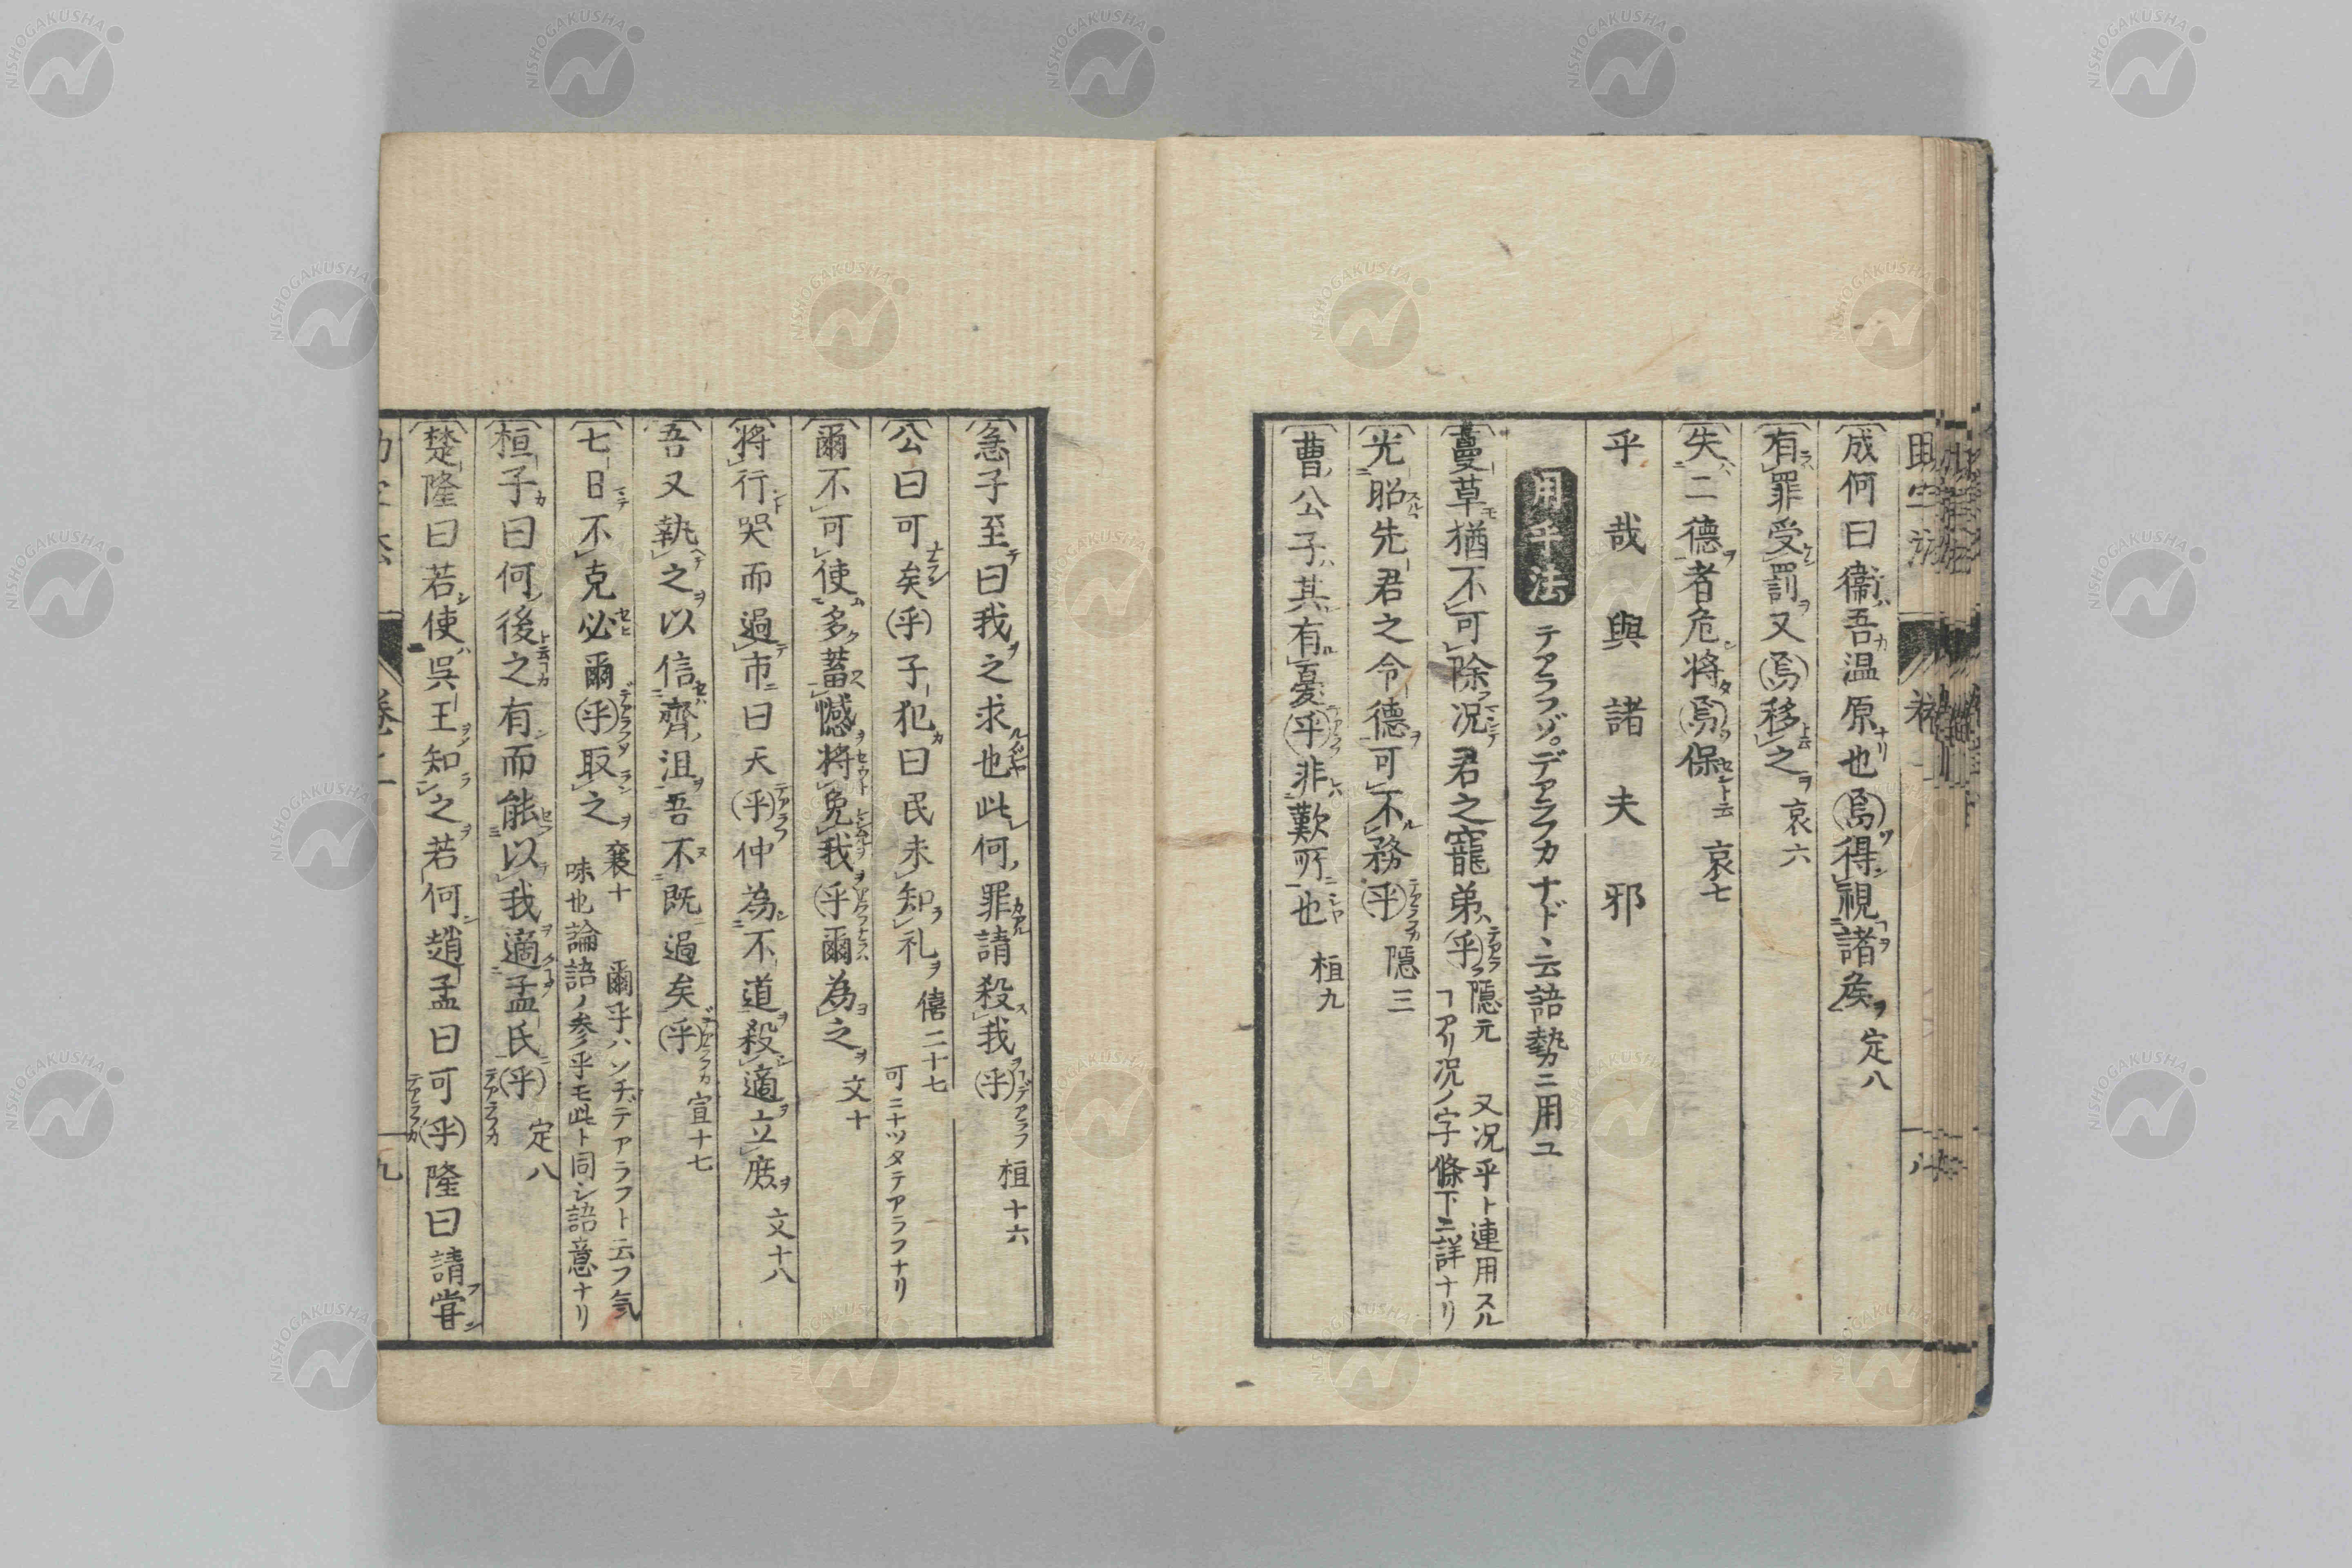 成何曰衞吾温原也焉得視諸矦 定八
有罪受罰又焉移之 哀六
失二德者危將焉保 哀七
乎哉與諸夫邪
用乎法 テアラフゾ。デアラフカナド、云語勢ニ用ユ
蔓草猶不可除况君之寵弟乎 隱元 又况乎ト連用スル
ヿアリ况ノ字條下ニ詳ナリ
光昭先君之令德可不務乎 隱三
曹公子其有憂乎非歎所也 桓九
急子至曰我之求也此何罪請殺我乎 桓十六
公曰可矣乎子犯曰民未知礼 僖二十七 可ニナツタテアラフナリ
爾不可使多蓄憾將免我乎爾為之 文十
將行哭而過市曰天乎仲為不道殺適立庶 文十八
吾又執之以信齊沮吾不既過矣乎 宣十七
七日不克必爾乎取之 襄十 爾乎ハソチデアラフト云フ気
味也論語ノ參乎モ此ト同シ語意ナリ
桓子曰何後之有而能以我適孟氏乎 定八
楚隆曰若使吳王知之若何趙孟曰可乎隆曰請嘗
九
NISHOGAKUSHA